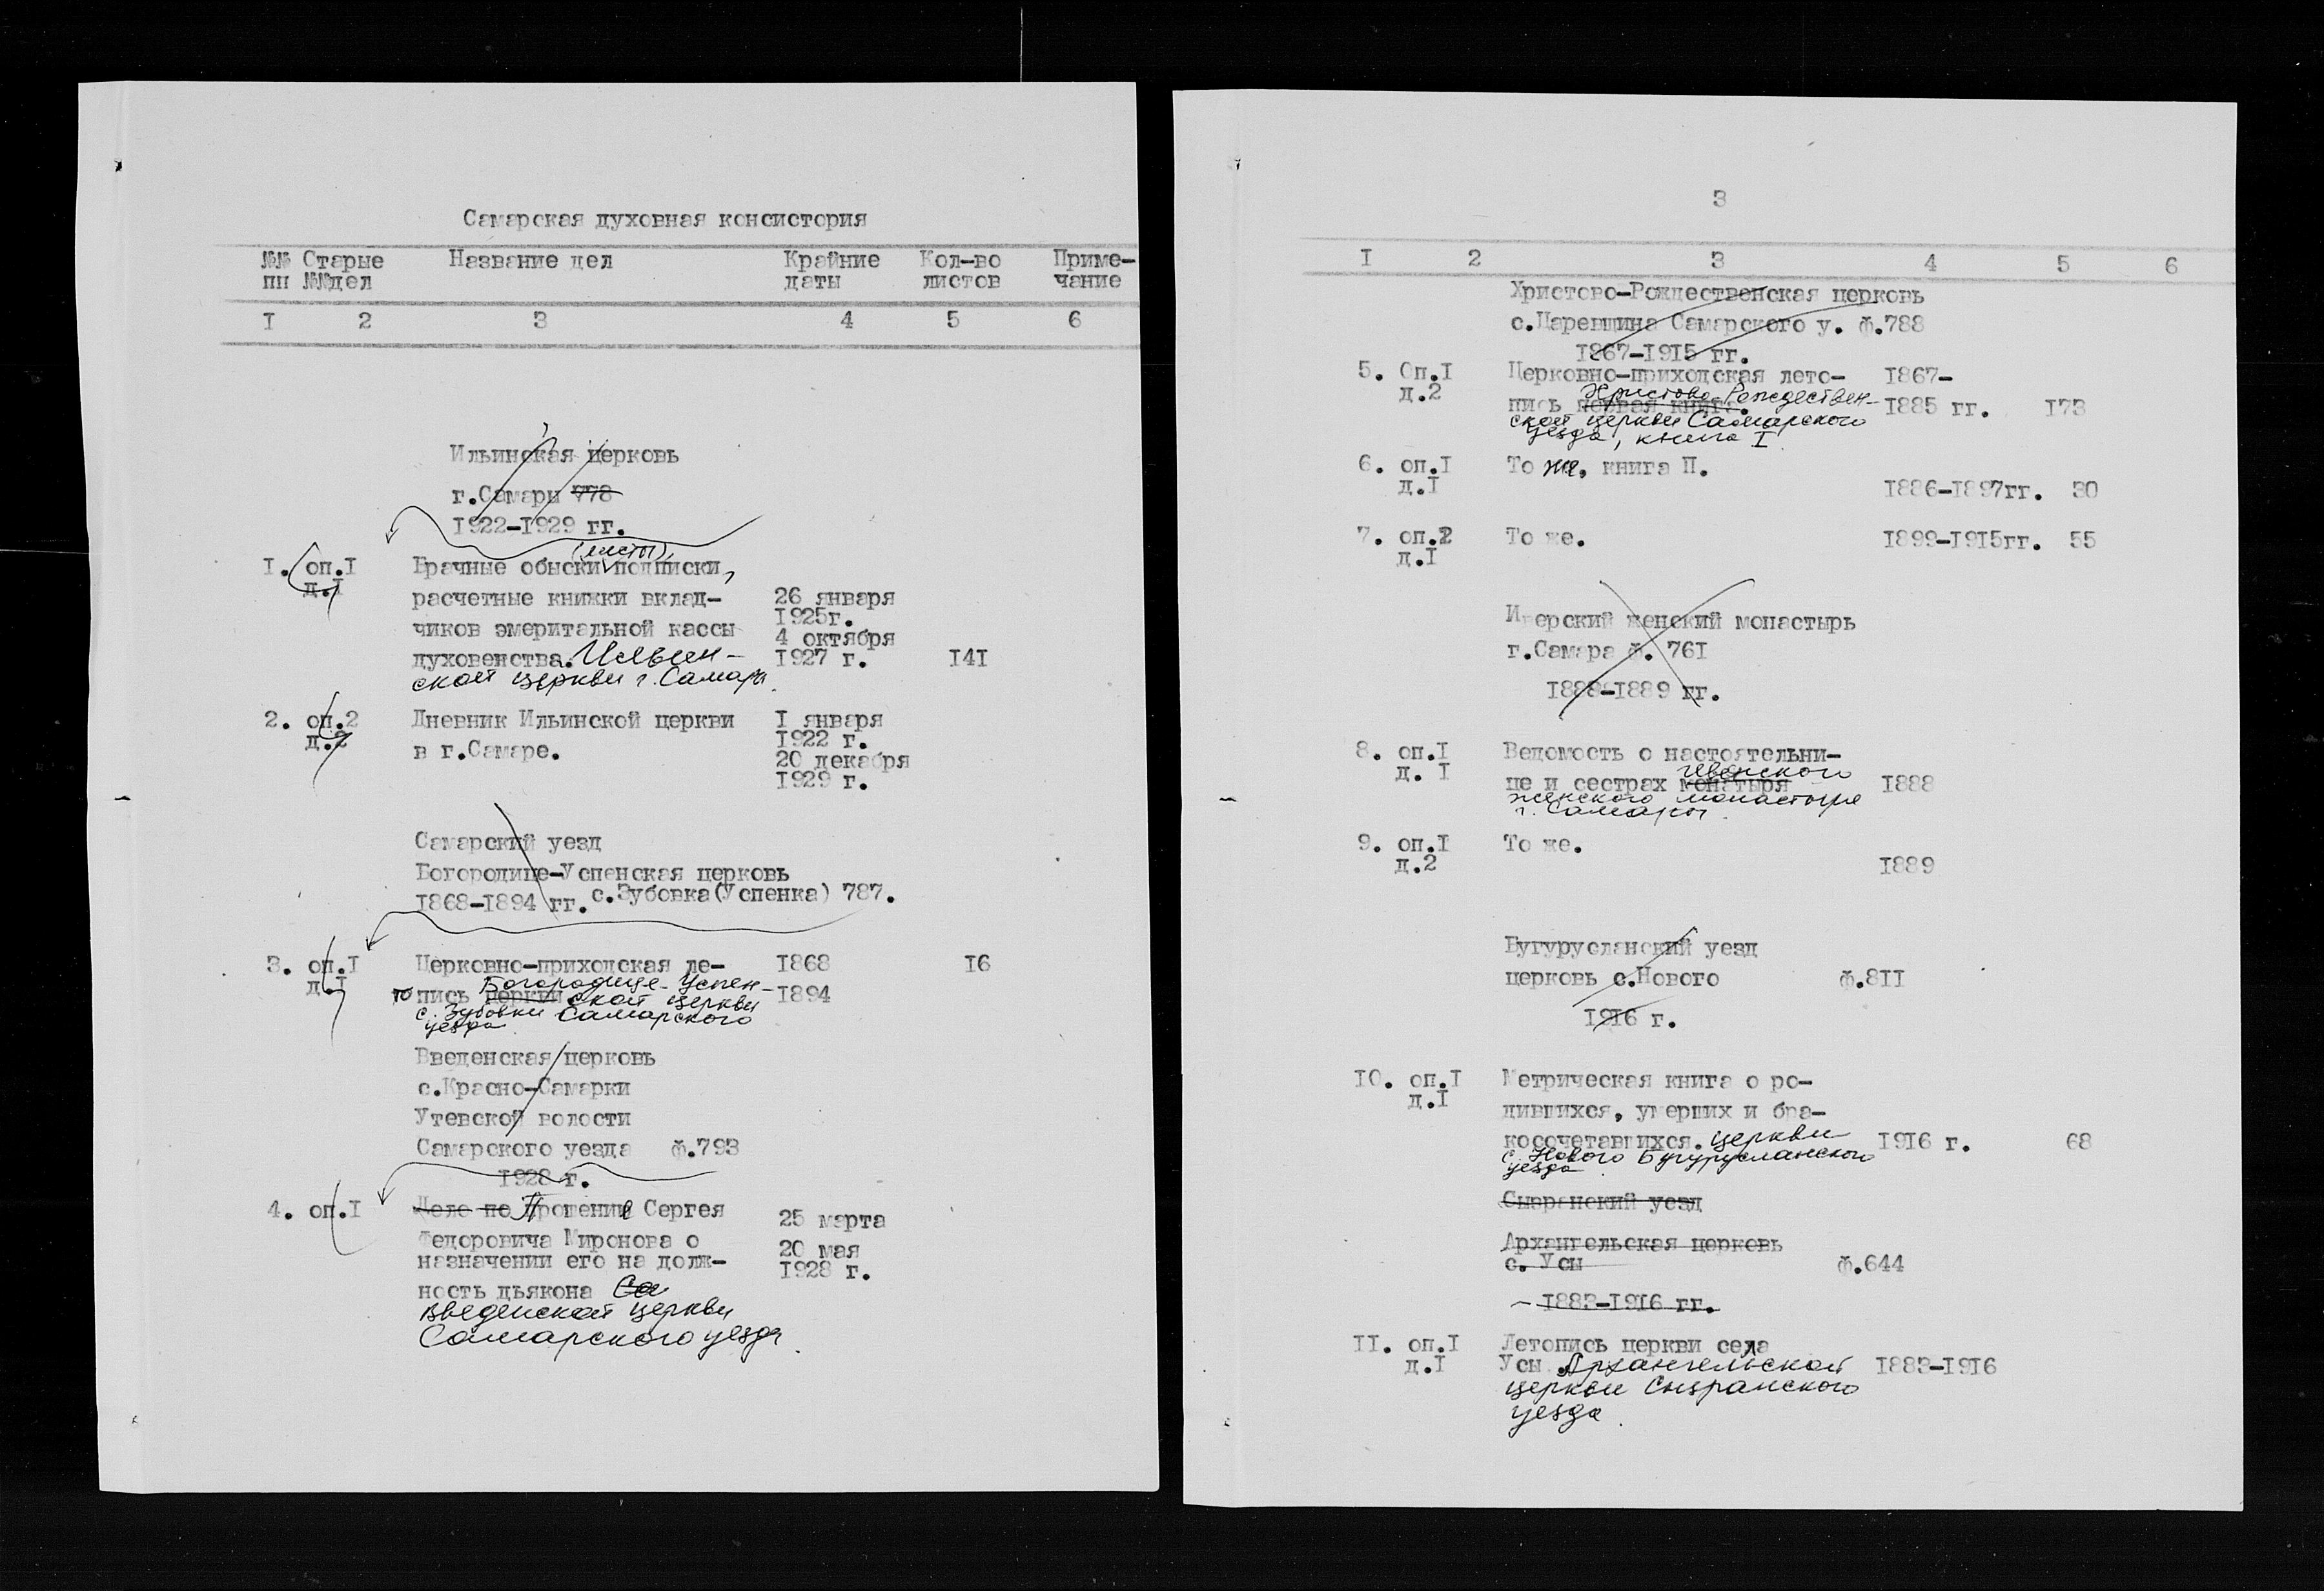 Самарская духовная консистория
№№ Старые Название дел Крайние Кол-во Приме-
пп №№дел даты листов чание
I 2 3 4 5 6
Ильинская церковь
г.Самары 778
1922-1929 гг.
(листы),
I. оп.I Брачные обыски подписки,
д.I
расчетные книжки вклад- 26 января
1925г.
чиков эмеритальной кассы 4 октября
духовенства. Ильин- 1927 г. 141
ской церкви г. Самары.
2. оп.2 Дневник Ильинской церкви I января
д.2 1922 г.
в г.Самаре. 20 декабря
1929 г.
Самарский уезд
Богородице-Успенская церковь
1868-1894 гг. с.Зубовка(Успенка) 787.
3. оп.I Церковно-приходская ле- 1868 16
д.I Богородице-Успен-
то пись церкви ской церкви 1894
с. Зубовки Самарского
уезда.
Введенская церковь
с.Красно-Самарки
Утевской волости
Самарского уезда ф.793
1928 г.
4. оп.I Дело по Прошение Сергея 25 марта
Федоровича Миронова о 20 мая
назначении его на долж- 1928 г.
ность дьякона Са
Введенской церкви
Самарского уезда.
3
I 2 3 4 5 6
Христово-Рождественская церковь
с.Царевщина Самарского у. ф.788
1867-1915 гг.
5. Оп.I Церковно-приходская лето- 1867-
д.2 Христово-Рождествен-
пись первая книга. 1885 гг. 173
ской церкви Самарского
уезда, книга I.
6. оп.I То же, книга П.
д.I 1886-1897гг. 30
7. оп.2 То же. 1899-1915гг. 55
д.I
Иверский женский монастырь
г.Самара ф. 761
1888-1889 гг.
8. оп.I Ведомость о настоятельни-
д. I Иверского
це и сестрах монатыря 1888
женского монастыря
г. Самары.
9. оп.I То же.
д.2 1889
Бугурусланский уезд
церковь с.Нового ф.811
1916 г.
10. оп.I Метрическая книга о ро-
д.I
дившихся, умерших и бра-
косочетавшихся. церкви 1916 г. 68
с. Нового Бугурусланского
уезда.
Сызранский уезд
Архангельская церковь
с. Усы ф.644
1883-1916 гг.
II. оп.I Летопись церкви села
д.I Усы Архангельской 1883-1916
церкви Сызранского
уезда.